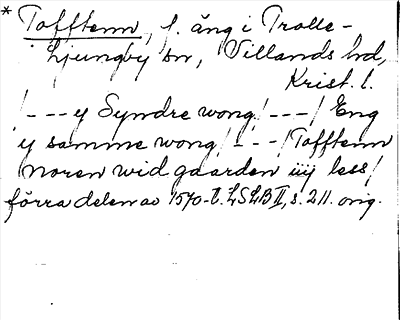 * Tofftenn, f. äng i Trolle-
Ljungby sn, Villands hd,
Krist. l.
/---y Syndre wong/---/ Eng
y samme wong/---/Tofftenn
noren wid gaarden iiij less/
förra delen av 1570-t. LSLB II, s. 211. orig.